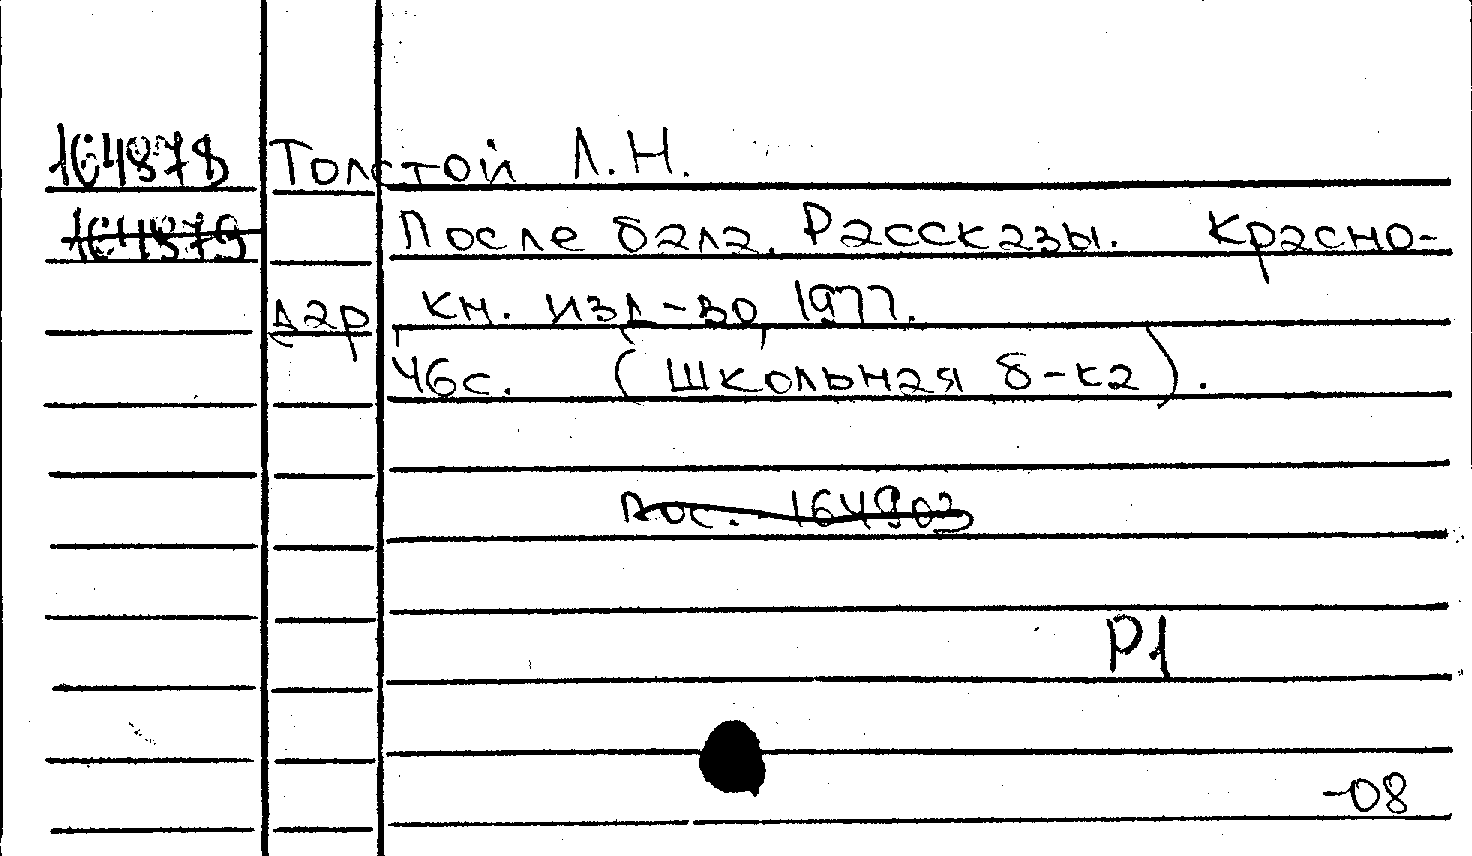 164878 Толстой Л.Н.
164879 После бала. Рассказы. Красно-
дар, кн. изд-во, 1977.
46с. (Школьная б-ка).
Вос. 164903
Р1
-08